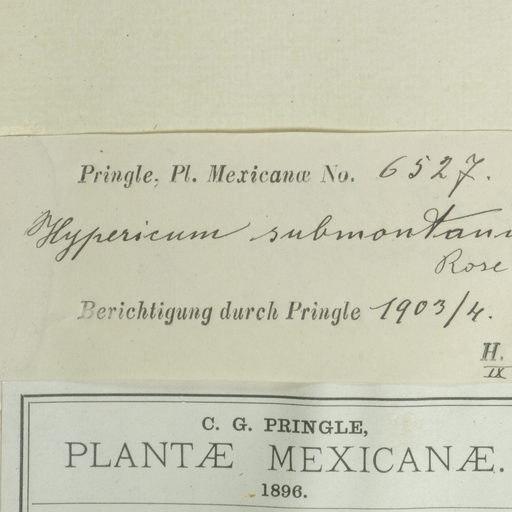 Pringle, Pl. Mexicanæ No. 6527.
Hypericum
Rose
Berichtigung durch Pringle 1903/4.
H.
IX
C. G. PRINGLE,
PLANTÆ MEXICANÆ.
1896.